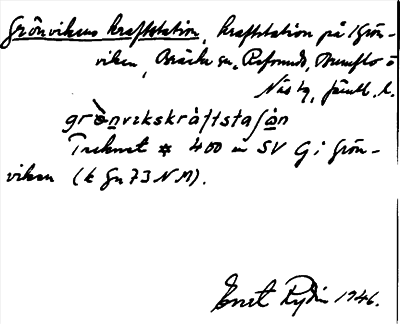 Grönvikens kraftstation, kraftstation på 1 Grön-
viken, Bräcke sn, Refsunds, Brunflo o
Näs tg, Jämtl. l.
grö̀nvikskràftstaʃån
Tecknet ✡ 400 m SV G i Grön-
viken (t Gn 73 NM).
Ernst Rydin 1946.